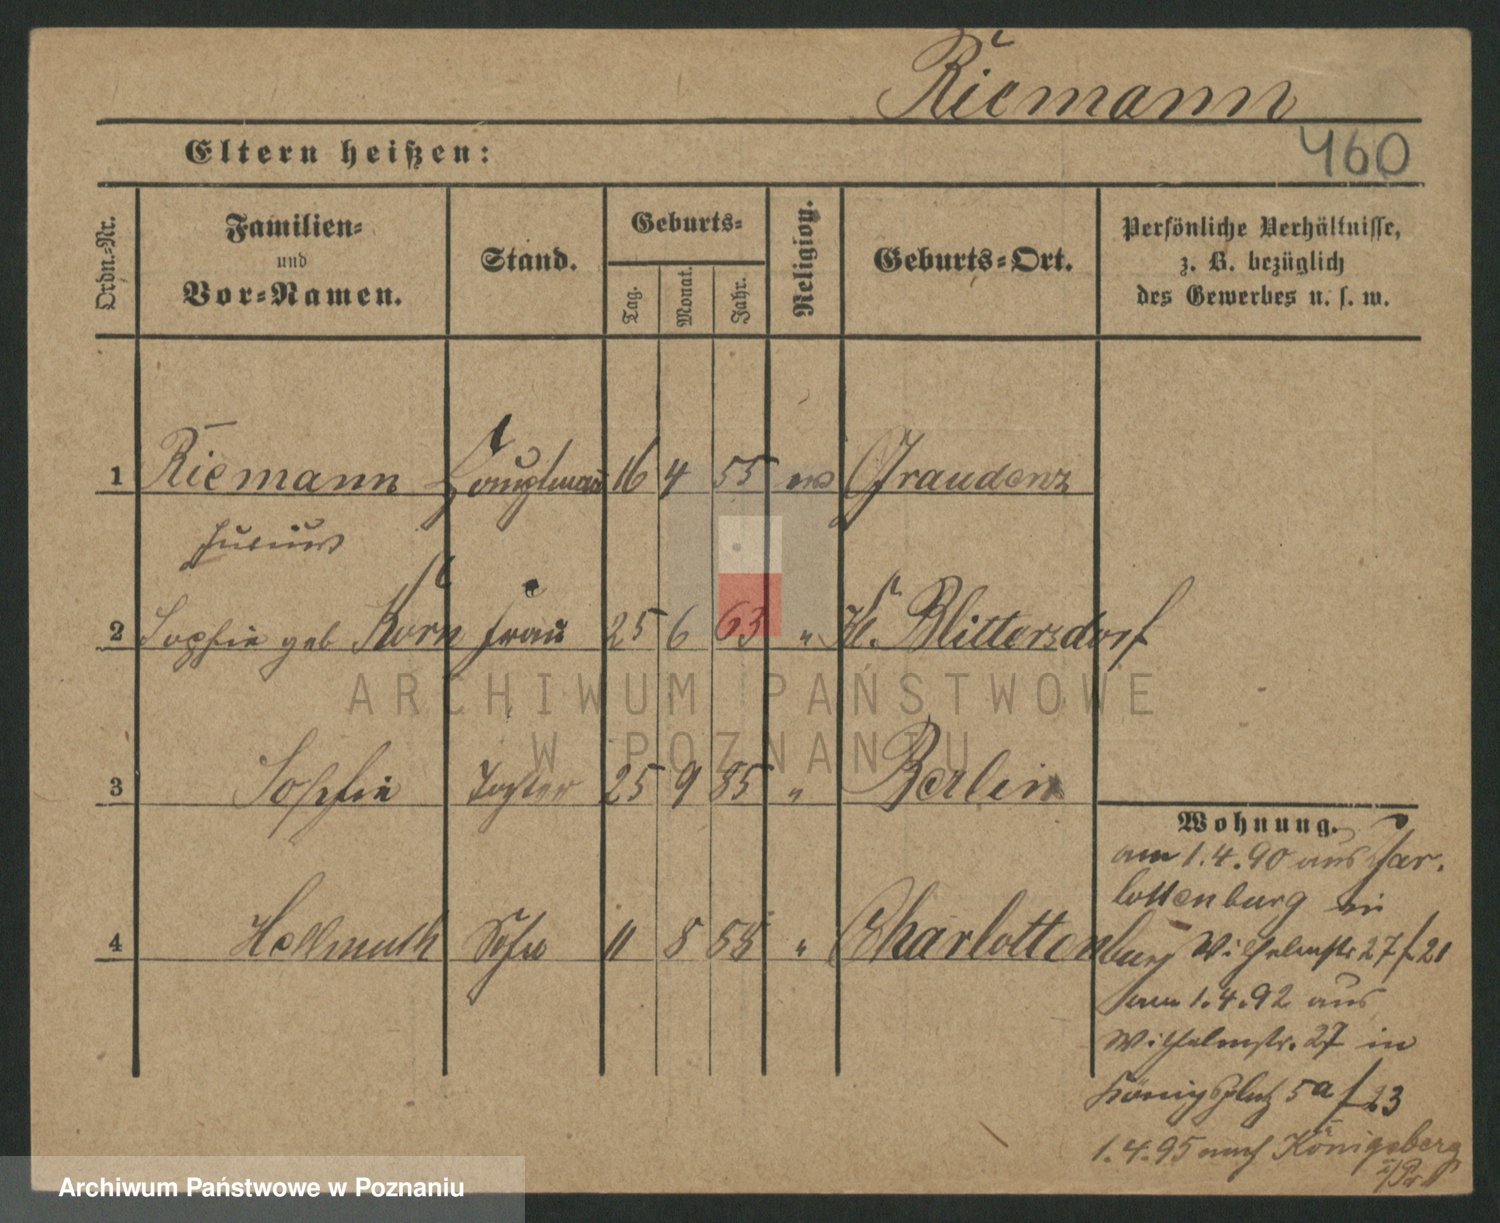 Riemann
460
Eltern heißen:
Ordn.-Nr.
Familien-
und
Vor-Namen.
Stand.
Geburts-
Tag.
Monat.
Jahr.
Religion.
Geburts-Ort.
Persönliche Verhältnisse,
z. B. bezüglich
des Gewerbes u. s. w.
1 Riemann Hauptmann 16 4 55 ev Graudenz
Julius
2 Sophie geb Korn Frau 25 6 63 " Kl. Blittersdorf
3 Sophie Tochter 25 9 85 " Berlin
4 Hellmuth Sohn 11 8 " Charlottenburg
Wohnung.
am 1.4.90 aus Char.
lottenburg in
Wilhelmstr 27 f 21
am 1.4.92 aus
Wilhelmstr. 27 in
Königsplatz 5a f 23
1.4.95 nach Königsberg
i/Pr.
ARCHIWUM PAŃSTWOWE
W POZNANIU
Archiwum Państwowe w Poznaniu